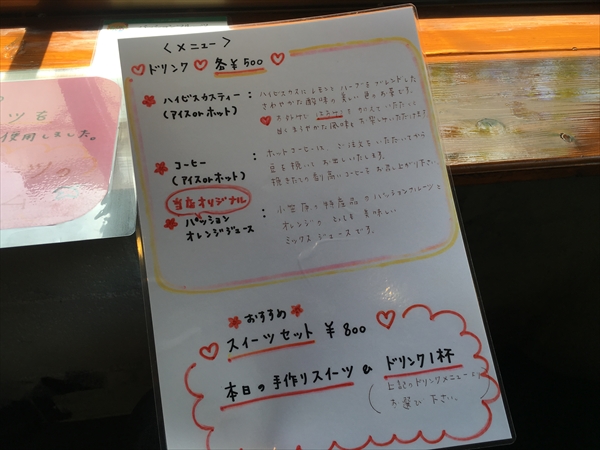 <メニュー>
ドリンク 各¥500
ハイビスカスティー
(アイス or ホット)
: ハイビスカスにレモン
さわやかな酸味の美しい 色のお茶です。
はちみつ を加えていただいて
コーヒー
(アイス or ホット)
: ホットコーヒーは、ご注文をいただいてから
豆を挽いてお出しいたします。
挽きたての香り高いコーヒーをお召し上がり下さい。
当店オリジナル
パッション
オレンジジュース
: 小笠原の特産品のパッションフルーツと
オレンジの とても 美味しい
ミックスジュースです。
おすすめ
スイーツセット ¥800
本日の手作りスイーツ & ドリンク1杯
(上記のドリンクメニューより
お選び下さい。)
を
使用しました。